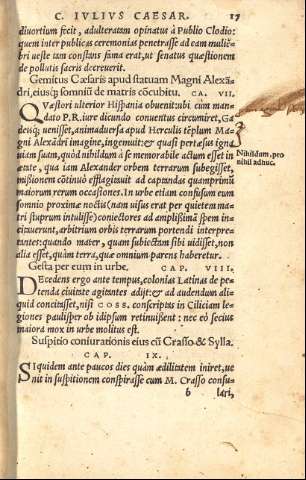 C. IVLIVS CAESAR. 17
diuortium fecit, adulteratam opinatus à Publio Clodio:
quem inter publicas ceremonias penetrasse ad eam mulie-
bri ueste tam constans fama erat, ut senatus quæstionem
de pollutis sacris decreuerit.
Gemitus Cæsaris apud statuam Magni Alexā-
dri, eiusq́; somniū de matris cōcubitu. CA. VII.
Quæstori ulterior Hispania obuenit: ubi cum man-
dato P.R. iure dicundo conuentus circumiret, Ga-
deisq́; uenisset, animaduersa apud Herculis tēplum Ma-
gni Alexādri imagine, ingemuit: & quasi pertæsus igna
uiam suam, quòd nihildum à se memorabile actum esset in
ætate, qua iam Alexander orbem terrarum subegisset,
missionem cōtinuò efflagitauit ad captandas quamprimū
maiorum rerum occasiones. In urbe etiam confusum eum
somnio proximæ noctis (nam uisus erat per quietem ma-
tri stuprum intulisse) coniectores ad amplißimā spem in-
citauerunt, arbitrium orbis terrarum portendi interpre-
tantes: quando mater, quam subiectam sibi uidisset, non
alia esset, quàm terra, quæ omnium parens haberetur.
Nihildum, pro
nihil adhuc.
Gesta per eum in urbe. CAP. VIII.
Decedens ergo ante tempus, colonias Latinas de pe-
tenda ciuitate agitantes adijt: & ad audendum ali-
quid concitasset, nisi COSS. conscriptas in Ciliciam le-
giones paulisper ob idipsum retinuißent: nec eò secius
maiora mox in urbe molitus est.
Suspitio coniurationis eius cū Crasso & Sylla.
CAP. IX.
Siquidem ante paucos dies quàm ædilitatem iniret, ue
nit in suspitionem conspirasse cum M. Crasso consu-
b lari,